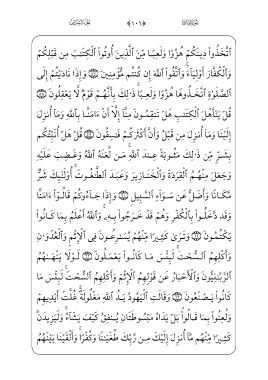 ٱتَّخَذُوا۟ دِينَكُمْ هُزُوًا وَلَعِبًا مِّنَ ٱلَّذِينَ أُوتُوا۟ ٱلْكِتَٰبَ مِن قَبْلِكُمْ
وَٱلْكُفَّارَ أَوْلِيَآءَ وَٱتَّقُوا۟ ٱللَّهَ إِن كُنتُم مُّؤْمِنِينَ وَإِذَا نَادَيْتُمْ إِلَى
ٱلصَّلَوٰةِ ٱتَّخَذُوهَا هُزُوًا وَلَعِبًا ذَٰلِكَ بِأَنَّهُمْ قَوْمٌ لَّا يَعْقِلُونَ
قُلْ يَٰٓأَهْلَ ٱلْكِتَٰبِ هَلْ تَنقِمُونَ مِنَّآ إِلَّآ أَنْ ءَامَنَّا بِٱللَّهِ وَمَآ أُنزِلَ
إِلَيْنَا وَمَآ أُنزِلَ مِن قَبْلُ وَأَنَّ أَكْثَرَكُمْ فَٰسِقُونَ قُلْ هَلْ أُنَبِّئُكُم
بِشَرٍّ مِّن ذَٰلِكَ مَثُوبَةً عِندَ ٱللَّهِ مَن لَّعَنَهُ ٱللَّهُ وَغَضِبَ عَلَيْهِ
وَجَعَلَ مِنْهُمُ ٱلْقِرَدَةَ وَٱلْخَنَازِيرَ وَعَبَدَ ٱلطَّٰغُوتَ أُو۟لَٰٓئِكَ شَرٌّ
مَّكَانًا وَأَضَلُّ عَن سَوَآءِ ٱلسَّبِيلِ وَإِذَا جَآءُوكُمْ قَالُوٓا۟ ءَامَنَّا
وَقَد دَّخَلُوا۟ بِٱلْكُفْرِ وَهُمْ قَدْ خَرَجُوا۟ بِهِۦ وَٱللَّهُ أَعْلَمُ بِمَا كَانُوا۟
يَكْتُمُونَ وَتَرَىٰ كَثِيرًا مِّنْهُمْ يُسَٰرِعُونَ فِى ٱلْإِثْمِ وَٱلْعُدْوَٰنِ
وَأَكْلِهِمُ ٱلسُّحْتَ لَبِئْسَ مَا كَانُوا۟ يَعْمَلُونَ لَوْلَا يَنْهَىٰهُمُ
ٱلرَّبَّٰنِيُّونَ وَٱلْأَحْبَارُ عَن قَوْلِهِمُ ٱلْإِثْمَ وَأَكْلِهِمُ ٱلسُّحْتَ لَبِئْسَ مَا
كَانُوا۟ يَصْنَعُونَ وَقَالَتِ ٱلْيَهُودُ يَدُ ٱللَّهِ مَغْلُولَةٌ غُلَّتْ أَيْدِيهِمْ
وَلُعِنُوا۟ بِمَا قَالُوا۟ بَلْ يَدَاهُ مَبْسُوطَتَانِ يُنفِقُ كَيْفَ يَشَآءُ وَلَيَزِيدَنَّ
كَثِيرًا مِّنْهُم مَّآ أُنزِلَ إِلَيْكَ مِن رَّبِّكَ طُغْيَٰنًا وَكُفْرًا وَأَلْقَيْنَا بَيْنَهُمُ